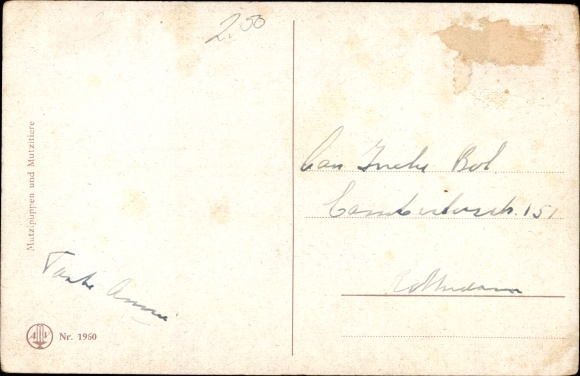 2.50
Mutzipuppen und Mutzitiere
Tante Annie
Nr. 1960
Aan Ineke Bol.
151
Rotterdam